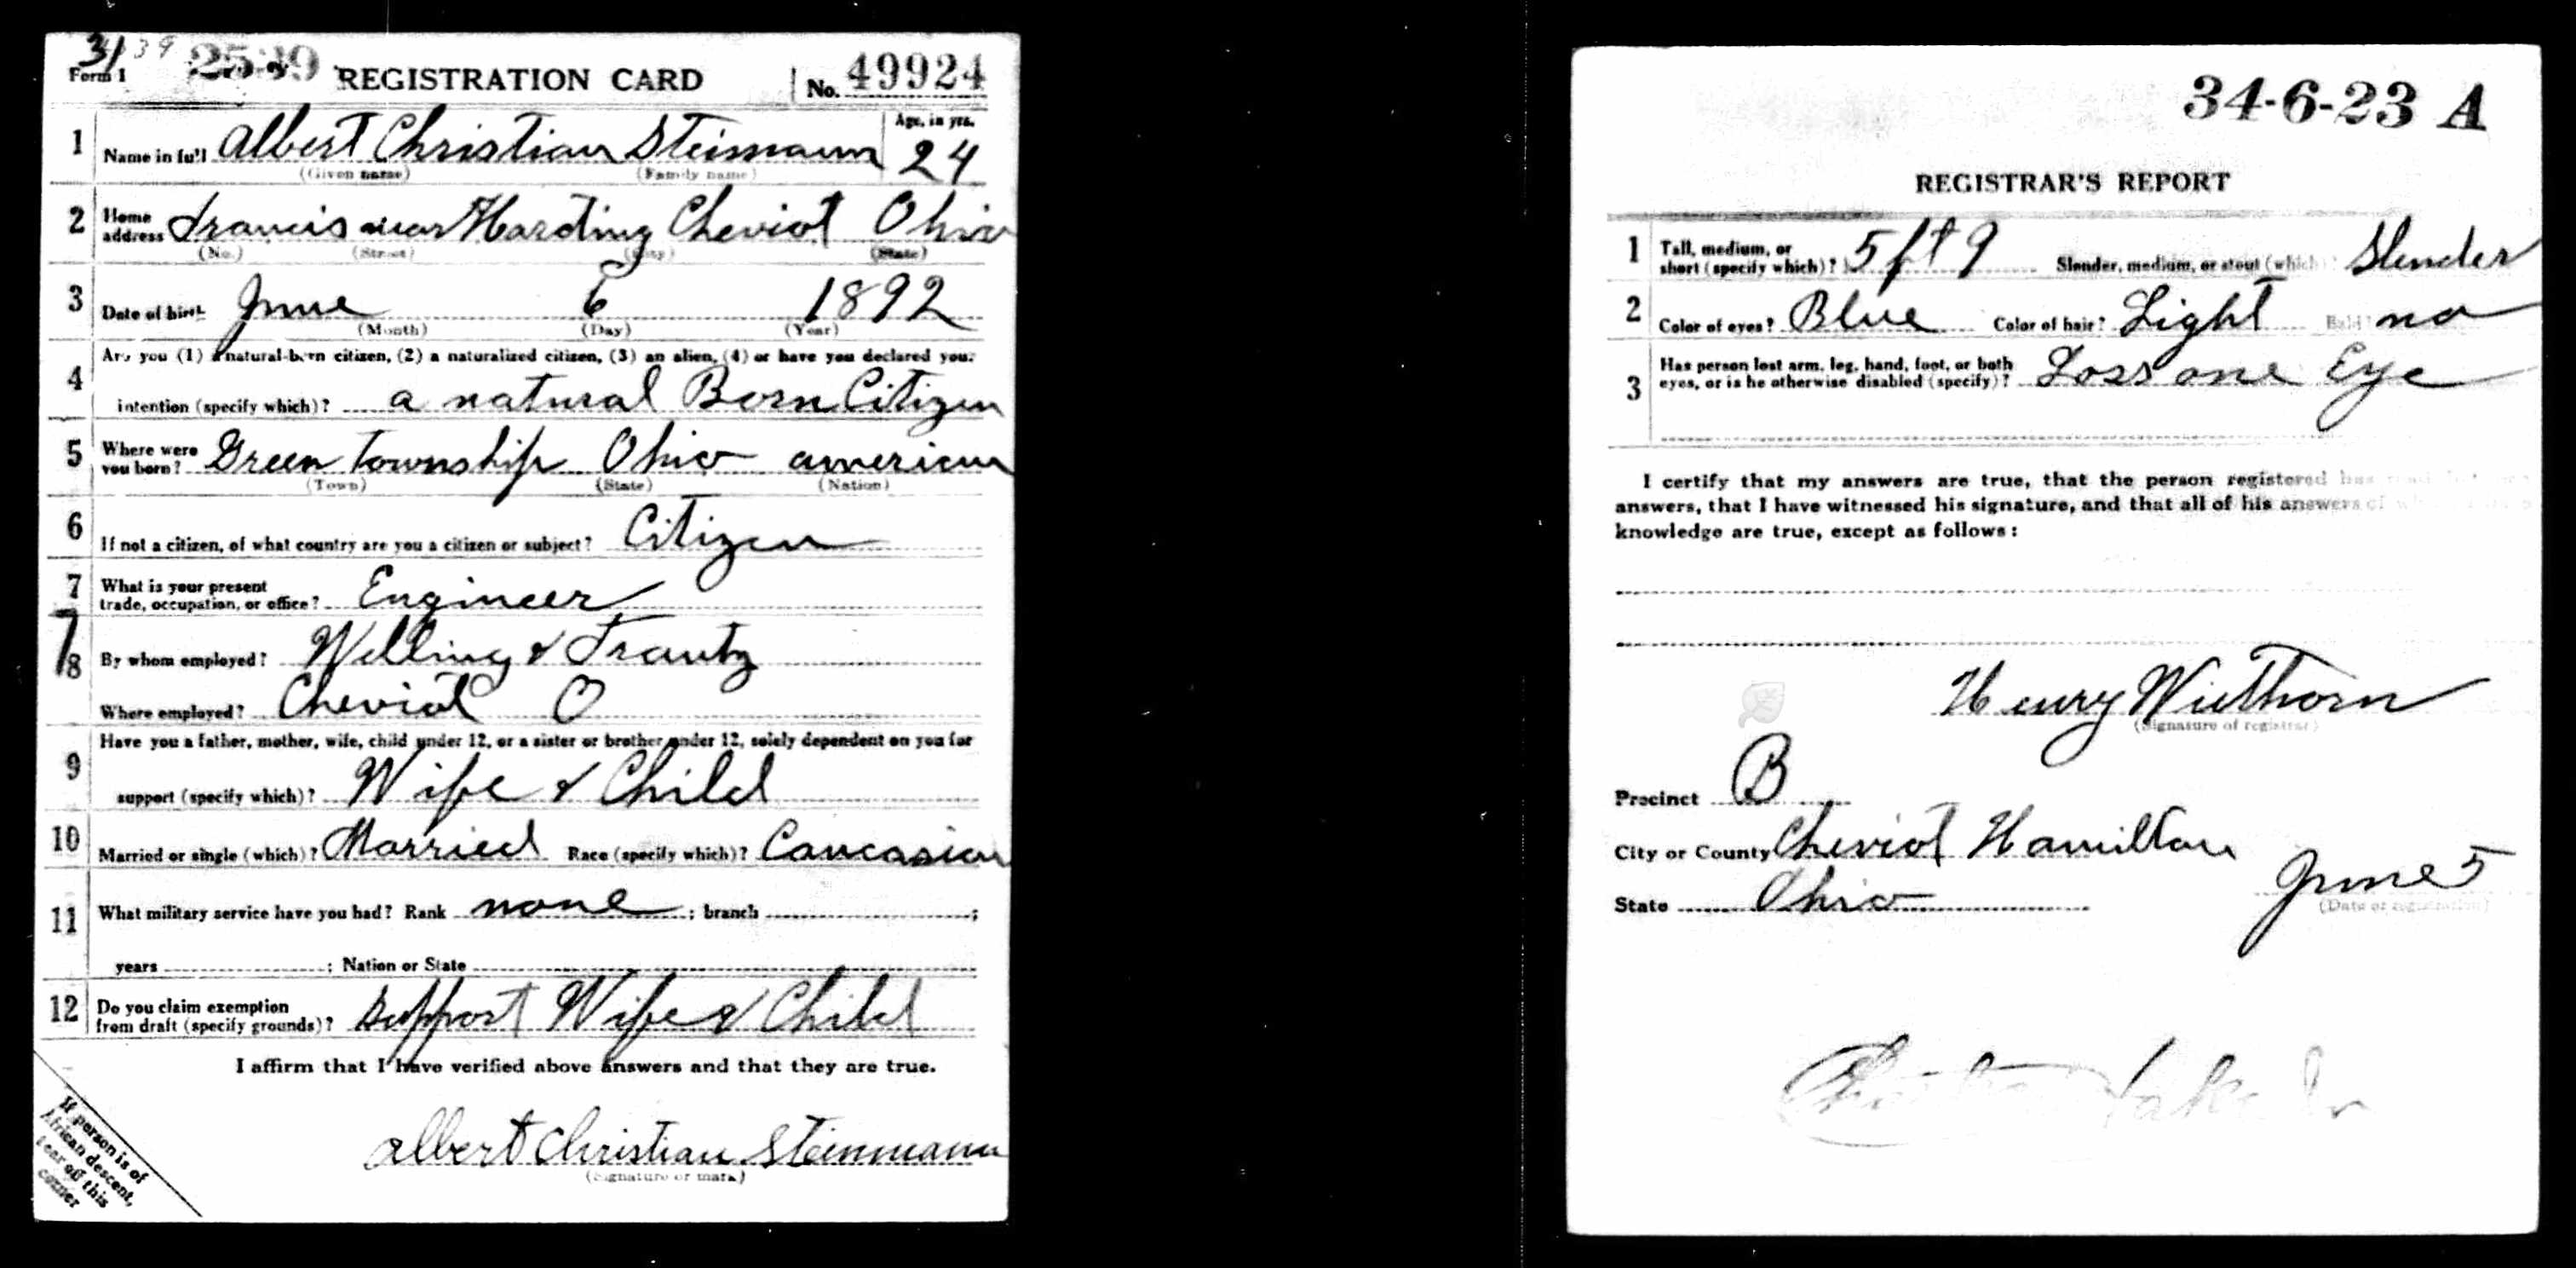 31 39 2539
Form 1 REGISTRATION CARD No. 49924
1 Name in full Albert Christian Steinmann Age, in yrs. 24
(Given name) (Family name)
2 Home address Francis near Harding Cheviot Ohio
(No.) (Street) (City) (State)
3 Date of birth June 6 1892
(Month) (Day) (Year)
4 Are you (1) a natural-born citizen, (2) a naturalized citizen, (3) an alien, (4) or have you declared your
intention (specify which)? a natural Born Citizen
5 Where were you born? Green Township Ohio american
(Town) (State) (Nation)
6 If not a citizen, of what country are you a citizen or subject? Citizen
7 What is your present
trade, occupation, or office? Engineer
8 By whom employed? Welling & Trautz
Where employed? Cheviot O
9 Have you a father, mother, wife, child under 12, or a sister or brother under 12, solely dependent on you for
support (specify which)? Wife & Child
10 Married or single (which)? Married Race (specify which)? Caucasian
11 What military service have you had? Rank none ; branch ;
years ; Nation or State
12 Do you claim exemption
from draft (specify grounds)? Support Wife & Child
I affirm that I have verified above answers and that they are true.
Albert Christian Steinmann
(Signature or mark)
If person is of
African descent,
tear off this
corner
34-6-23 A
REGISTRAR'S REPORT
1 Tall, medium, or
short (specify which)? 5 ft 9 Slender, medium, or stout (which)? Slender
2 Color of eyes? Blue Color of hair? Light Bald? no
3 Has person lost arm, leg, hand, foot, or both
eyes, or is he otherwise disabled (specify)? Loss one Eye
I certify that my answers are true, that the person registered has
answers, that I have witnessed his signature, and that all of his answers of
knowledge are true, except as follows:
Henry Wiethorn
(Signature of registrar)
Precinct B
City or County Cheviot Hamilton
State Ohio June 5
(Date of registration)